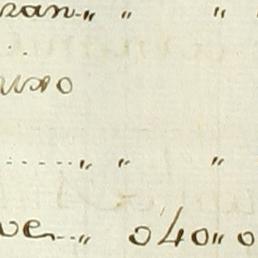 san-„ „ „
uso
......„ „ „
ve...„ 040„ 0